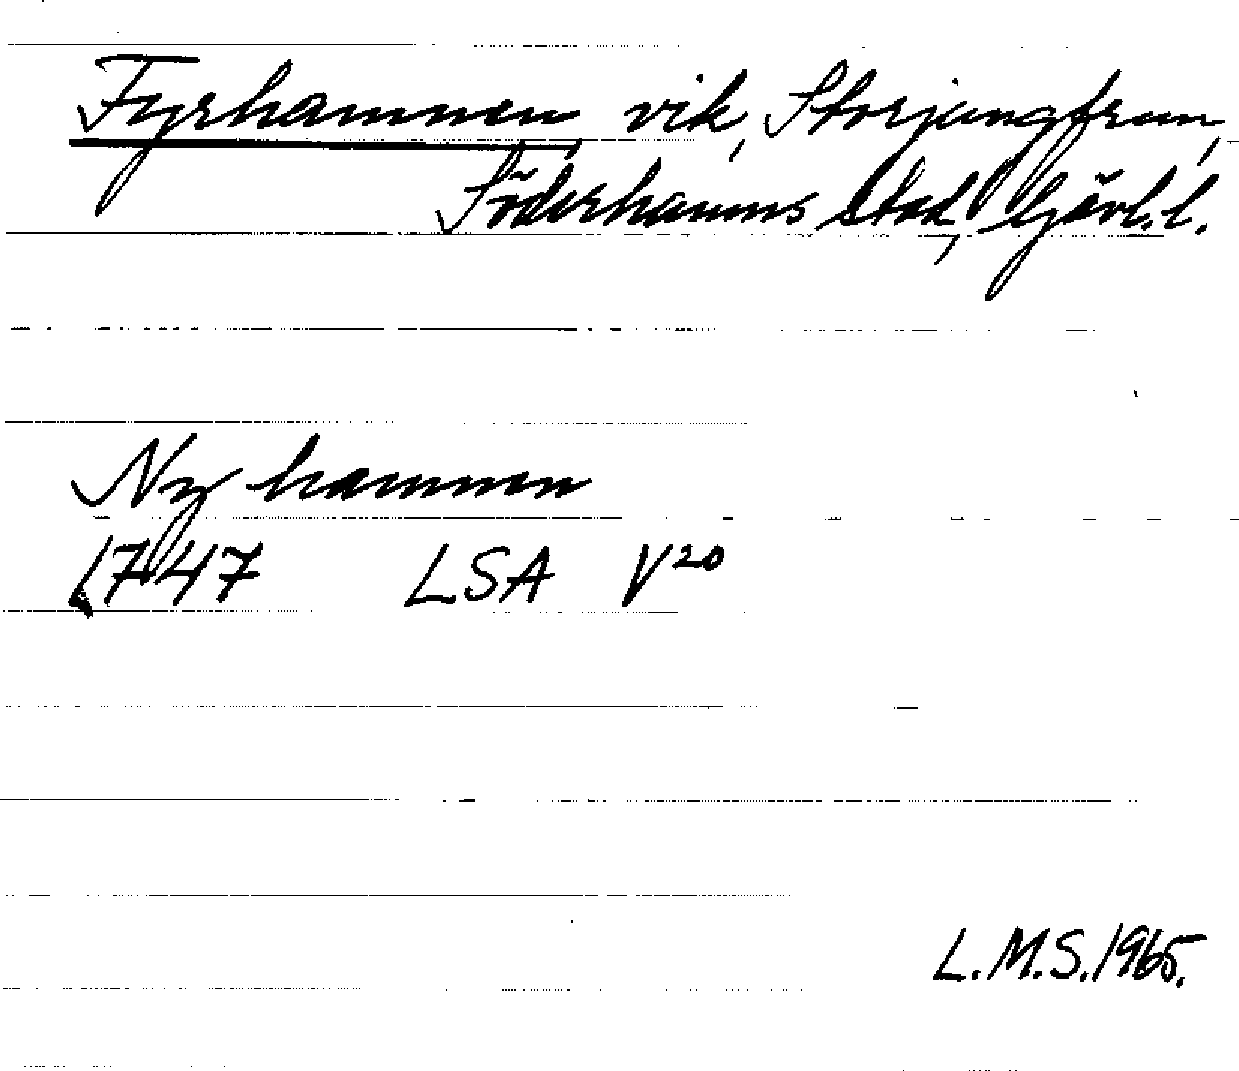 Fyrhamnen vik, Storjungfrun,
Söderhamns stad, Gävl.l.
Ny hamnen
1747 LSA V20
L.M.S.1965.